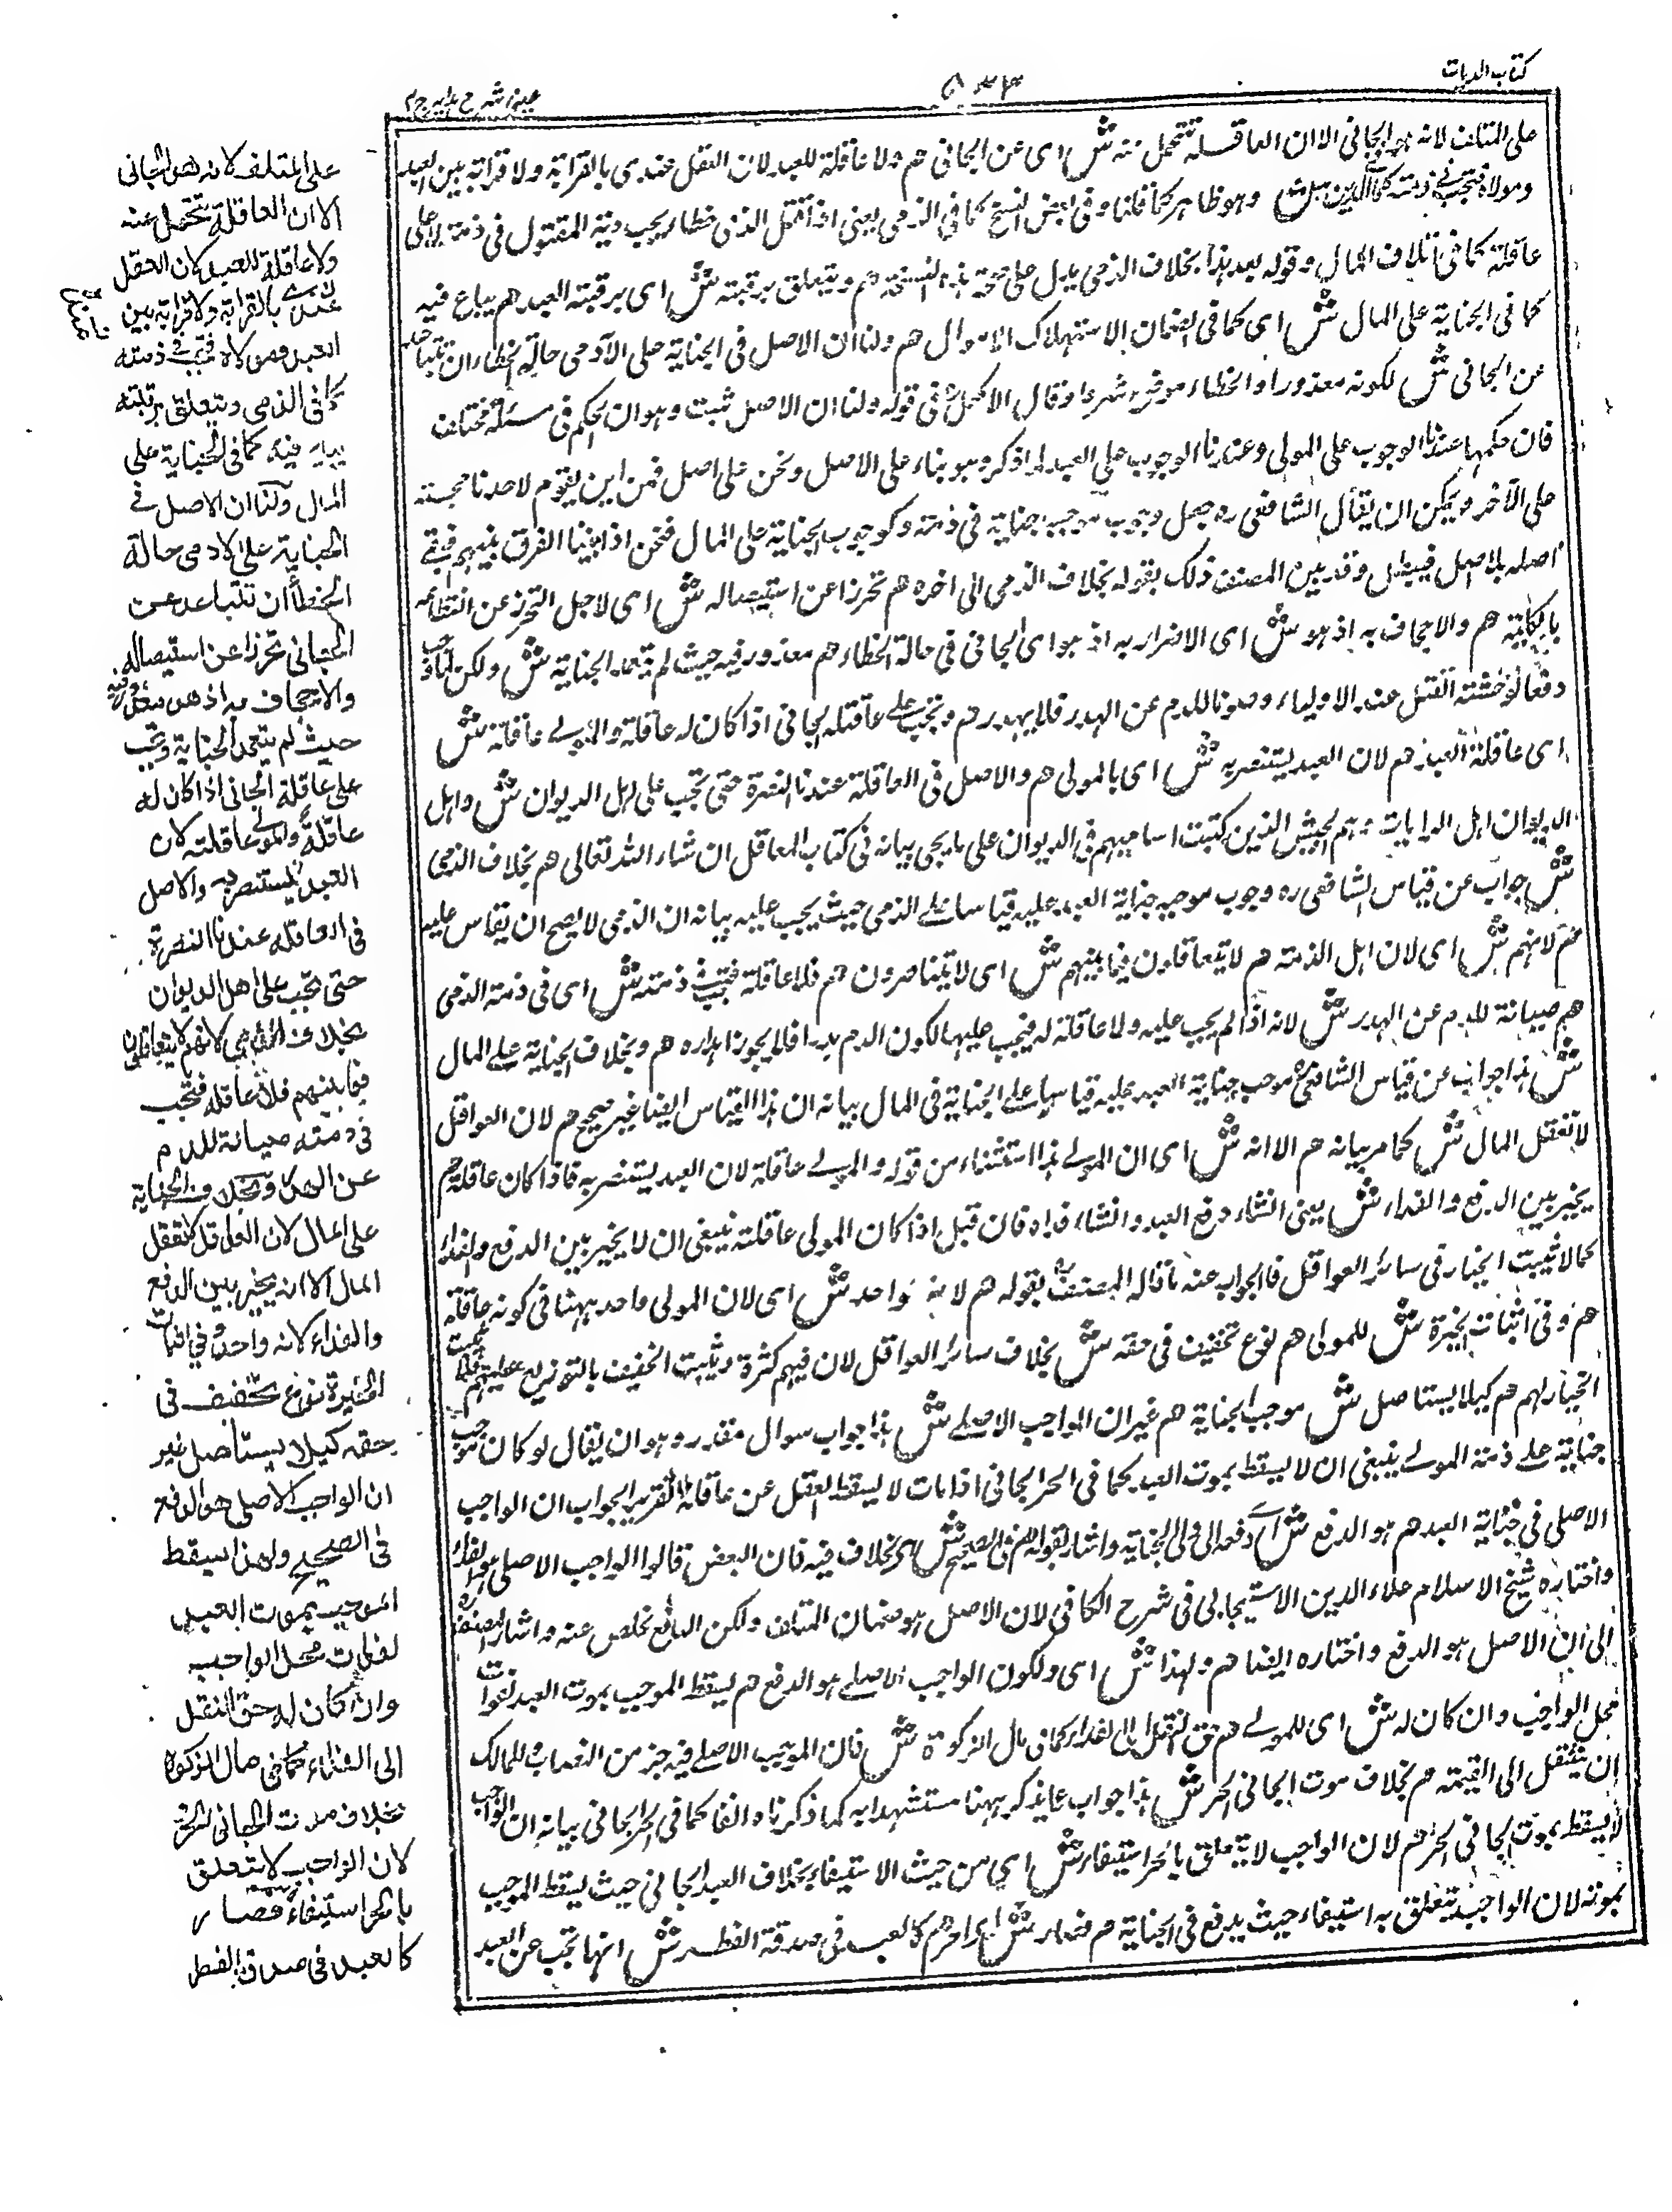 كتاب الديات
٥٣٤
عيني شرح هدايه ج ٤
على المتلف لانه هو الجاني الا ان العاقلة تتحمل عنه ش اى عن الجاني هم ولا عاقلة للعبد لان العقل عندى بالقرابة ولا قرابة بين العبد
ومولاه فتجب في ذمته كما في الدين ش وهو ظاهر كما قلنا وفى بعض النسخ كما في الذمى يعنى اذا قتل الذمى خطاء يجب دية المقتول فى ذمته لا على
عاقلته كما فى اتلاف المال وقوله بعد هذا بخلاف الذمى يدل على صحة هذه النسخة هم ويتعلق برقبته ش اى برقبته العبد هم يباع فيه
كما فى الجناية على المال ش اى كما فى الضمان الاستهلاك الاموال هم ولنا ان الاصل فى الجناية على الآدمى حالة الخطاء ان تتباعد
عن الجانى ش لكونه معذورا والخطاء موضوع شرعا وقال الاكمل فى قوله ولنا ان الاصل ثبت وهو ان الحكم فى مسئلة مختلف
فان حكمها عندنا الوجوب على المولى وعندنا الوجوب على العبد لما ذكره وهو بناء على الاصل ونحن على اصل فمن اين يقوم لاحدنا حجة
على الآخر ويمكن ان يقال الشافعى ره جعل وجوب موجب جناية فى ذمته كوجوب الجناية على المال فنحن اذا بينا الفرق بينهم فبقى
اصله بلا اصل فيبطل وقد بين المصنف ذلك بقوله بخلاف الذمى الى اخره هم تحرزا عن استيصاله ش اى لاجل التحرز عن انقطاعه
بالكلية هم والاجحاف به اذ هو ش اى الاضرار به اذ هو اى الجانى فى حالة الخطاء هم معذور فيه حيث لم يتعمد الجناية ش ولكن الدية تجب
دفعا لوحشة القتل عند الاولياء وصونا للدم عن الهدر فلا يهدر هم وتجب على عاقلة الجانى اذا كان له عاقلة والمولى عاقلته ش
اى عاقلة العبد هم لان العبد يستنصر به ش اى بالمولى هم والاصل فى العاقلة عندنا النصرة حتى تجب على اهل الديوان ش واهل
الديوان اهل الرايات وهم الجيش الذين كتبت اساميهم فى الديوان على ما يجى بيانه فى كتاب المعاقل ان شاء الله تعالى هم بخلاف الذمى
ش جواب عن قياس الشافعى ره وجوب موجب جناية العبد عليه قياسا على الذمى حيث يجب عليه بيانه ان الذمى لا يصح ان يقاس عليه
هم لانهم ش اى لان اهل الذمة هم لا يتعاقلون فيما بينهم ش اى لا يتناصرون هم فلا عاقلة فتجب فى ذمته ش اى فى ذمة الذمى
هم صيانة للدم عن الهدر ش لانه اذا لم يجب عليه ولا عاقلة له فيجب عليها لكون الدم هدرا فلا يجوز اهداره هم وبخلاف الجناية على المال
ش هذا جواب عن قياس الشافعى موجب جناية العبد عليه قياسا على الجناية فى المال بيانه ان هذا القياس ايضا غير صحيح هم لان العواقل
لا تعقل المال ش كما مر بيانه هم الا انه ش اى ان المولى هذا استثناء من قوله والمولى عاقلته لان العبد يستنصر به فاذا كان عاقلة هم
يخير بين الدفع والفداء ش يعنى انشاء دفع العبد وانشاء فداه فان قيل اذا كان المولى عاقلته ينبغى ان لا يخير بين الدفع والفداء
كما لا يثبت الخيار فى سائر العواقل فالجواب عنه ما قاله المصنف ره بقوله هم لانه واحد ش اى لان المولى واحد ههنا فى كونه عاقلته
هم وفى اثبات الخيرة ش للمولى هم نوع تخفيف فى حقه ش بخلاف سائر العواقل لان فيهم كثرة ويثبت الخفيف بالتوزيع عليهم فلا يثبت
الخيار لهم هم كيلا يستاصل ش موجب الجناية هم غير ان الواجب الاصلى ش هذا جواب سوال مقدر وهو ان يقال لو كان موجب
جناية على ذمة المولى ينبغى ان لا يسقط بموت العبد كما فى الحر الجانى اذا مات لا يسقط العقل عن عاقلته تقرير الجواب ان الواجب
الاصلى فى جناية العبد هم هو الدفع ش اى دفعه الى ولى الجناية واشار بقوله هم فى الصحيح ش الى خلاف فيه فان البعض قالوا الواجب الاصلى هو الفداء
واختاره شيخ الاسلام علاء الدين الاسبيجابى فى شرح الكافى لان الاصل هو ضمان المتلف ولكن الدافع تخلص عنه واشار المصنف ره
الى ان الاصل هو الدفع واختاره ايضا هم ولهذا ش اى ولكون الواجب الاصلى هو الدفع هم يسقط الموجب بموت العبد لفوات
محل الواجب وان كان له ش اى للمولى هم حق النقل الى الفداء كما فى مال الزكوة ش فان الموجب الاصلى فيه جزء من النصاب وللمالك
ان ينتقل الى القيمة هم بخلاف موت الجانى الحر ش هذا جواب عما يذكر ههنا مستشهدا به كما ذكرناه انفا كما فى الحر الجانى بيانه ان الواجب
لا يسقط بموت الجانى الحر هم لان الواجب لا يتعلق بالحر استيفاء ش اى من حيث الاستيفاء بخلاف العبد الجانى حيث يسقط الموجب
بموته لان الواجب يتعلق به استيفاء حيث يدفع فى الجناية هم فصار ش اى الحر هم كالعبد فى صدقة الفطر ش انها تجب عن العبد
على المتلف لانه هو الجانى
الا ان العاقلة تتحمل عنه
ولا عاقلة للعبد لان العقل
عندى بالقرابة ولا قرابة بين
العبد ومولاه فتجب فى ذمته
كما فى الذمى ويتعلق برقبته
يباع فيه كما فى الجناية على
المال ولنا ان الاصل فى
الجناية على الادمى حالة
الخطأ ان تتباعد عن
الجانى تحرزا عن استيصاله
والاجحاف به اذ هو معذور فيه
حيث لم يتعمد الجناية وتجب
على عاقلة الجانى اذا كان له
عاقلة والمولى عاقلته لان
العبد يستنصر به والاصل
فى العاقلة عندنا النصرة
حتى تجب على اهل الديوان
بخلاف الذمى لانهم لا يتعاقلون
فيما بينهم فلا عاقلة فتجب
فى ذمته صيانة للدم
عن الهدر وبخلاف الجناية
على المال لان العواقل لا تعقل
المال الا انه يخير بين الدفع
والفداء لانه واحد وفى اثبات
الخيرة نوع تخفيف فى
حقه كيلا يستأصل غير
ان الواجب الاصلى هو الدفع
فى الصحيح ولهذا يسقط
الموجب بموت العبد
لفوات محل الواجب
وان كان له حق النقل
الى الفداء كما فى مال الزكوة
بخلاف موت الجانى الحر
لان الواجب لا يتعلق
بالحر استيفاء فصار
كالعبد فى صدقة الفطر